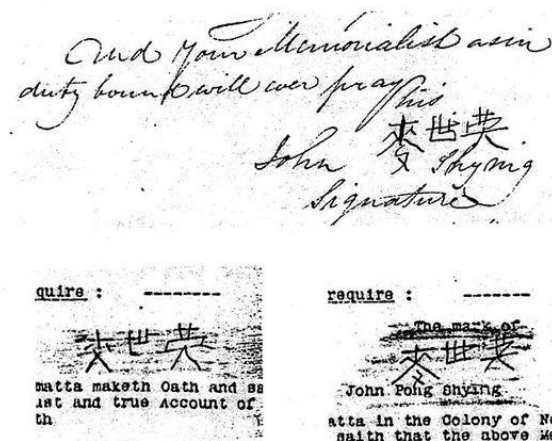 And your Memorialist as in
duty bound will ever pray
his
麥世英
John Shying
Signature
quire : --------
麥世英
matta maketh Oath and sa
ust and true Account of
th
require : -------
The mark of
麥世英
John Pong Shying
atta in the Colony of Ne
saith that the above Me